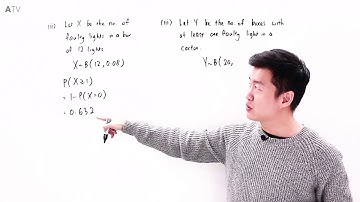 ATV
(ii) Let X be the no. of
faulty lights in a box
of 12 lights
X~B(12, 0.08)
P(X≥1)
= 1-P(X=0)
= 0.632
(iii) Let Y be the no. of boxes with
at least one faulty light in a
carton.
Y~B(20,